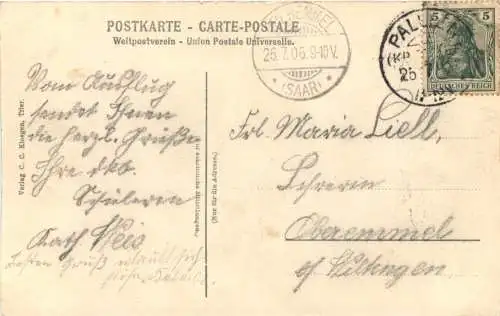 POSTKARTE - CARTE-POSTALE
Weltpostverein - Union Postale Universelle.
26.7.06.9-10V.
(SAAR)
PALZEM
25
5 5
DEUTSCHES REICH
Verlag C. C. Kluegen, Trier.
Vom Ausflug
sendet Ihnen
die herzl. Grüße
Ihre dkb.
Schülerin
Kath. Weis
Besten Gruß erlaubt sich
(Nur für die Adresse.)
Frl Maria Liell,
Lehrerin
Oberemmel
b/ Wiltingen